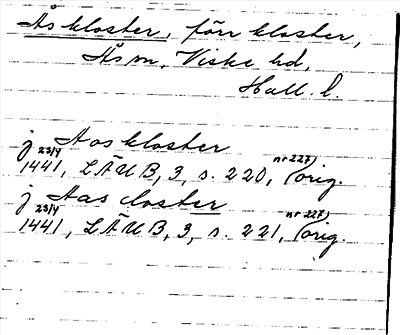 Ås kloster, förr kloster,
Ås sn, Viske hd,
Hall. l.
j Aos kloster
1441 23/4, LÄUB, 3, s. 220, nr 227) (orig.
j Aas closter
1441 23/4, LÄUB, 3, s. 221, nr 227) (orig.